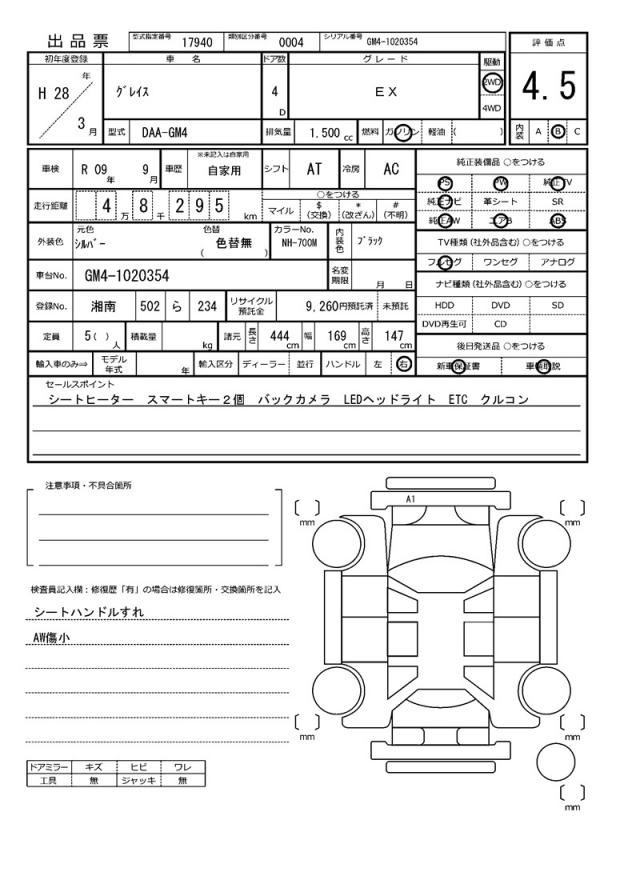 出品票 型式指定番号 17940 類別区分番号 0004 シリアル番号 GM4-1020354
初年度登録 車名 ドア数 グレード 駆動 評価点
H 28 年 3 月 グレイス 4 D EX 2WD 4WD 4.5
型式 DAA-GM4 排気量 1.500 cc 燃料 ガソリン 軽油 ( ) 内装 A B C
車検 R 09 年 9 月 車歴 ※未記入は自家用 自家用 シフト AT 冷房 AC
純正装備品 ○をつける
PS PW 純正TV
純正ナビ 革シート SR
純正AW エアB ABS
走行距離 4 万 8 千 2 9 5 km ○をつける マイル $ (交換) * (改ざん) # (不明)
外装色 元色 シルバー 色替 ( 色替無 ) カラーNo. NH-700M 内装色 ブラック
TV種類 (社外品含む) ○をつける
フルセグ ワンセグ アナログ
車台No. GM4-1020354 名変期限 月 日
ナビ種類 (社外品含む) ○をつける
HDD DVD SD
DVD再生可 CD
登録No. 湘南 502 ら 234 リサイクル預託金 9,260円預託済 未預託
定員 5( ) 人 積載量 kg 諸元 長さ 444 cm 幅 169 cm 高さ 147 cm
後日発送品 ○をつける
新車保証書 車輌取説
輸入車のみ⇒ モデル年式 年 輸入区分 ディーラー 並行 ハンドル 左 右
セールスポイント
シートヒーター スマートキー2個 バックカメラ LEDヘッドライト ETC クルコン
注意事項・不具合箇所
A1
mm
mm
検査員記入欄:修復歴「有」の場合は修復箇所・交換箇所を記入
シートハンドルすれ
AW傷小
mm
mm
ドアミラー キズ ヒビ ワレ
工具 無 ジャッキ 無
mm